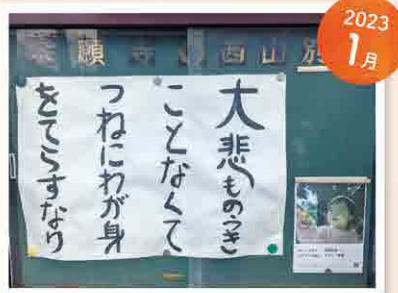 2023
1月
本願寺の西山別
大悲ものうき
ことなくて
つねにわが身
をてらすなり